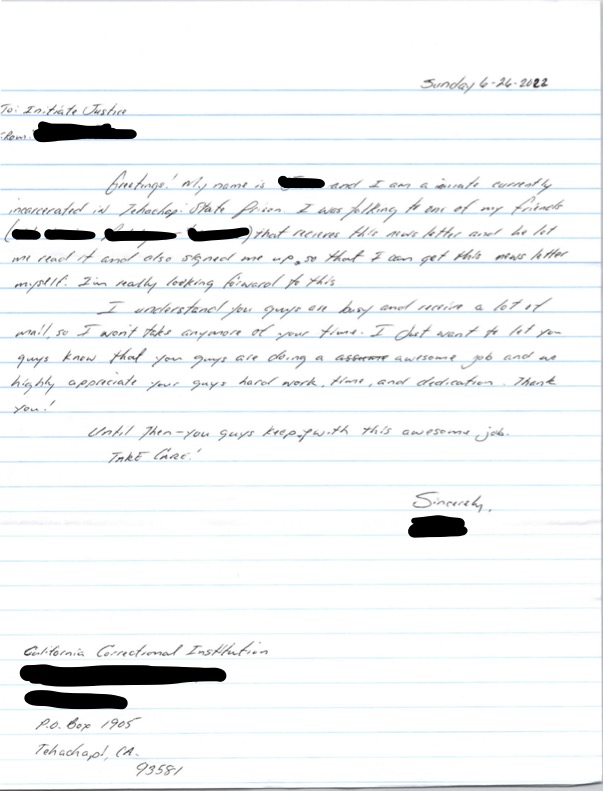 Sunday 6-26-2022
To: Initiate Justice
From:
Greetings! My name is and I am a inmate currently
incarcerated in Tehachapi State Prison. I was talking to one of my friends
( ) that recieves this news letter and he let
me read it and also signed me up, so that I can get this news letter
myself. I'm really looking forward to this.
I understand you guys are busy and receive a lot of
mail, so I won't take anymore of your time. I Just want to let you
guys know that you guys are doing a awesome job and we
highly appreciate your guys hard work, time, and dedication. Thank
you!
Until Then-you guys keep up with this awesome job.
TAKE CARE!
Sincerely,
California Correctional Institution
P.O. Box 1905
Tehachapi, CA.
93581